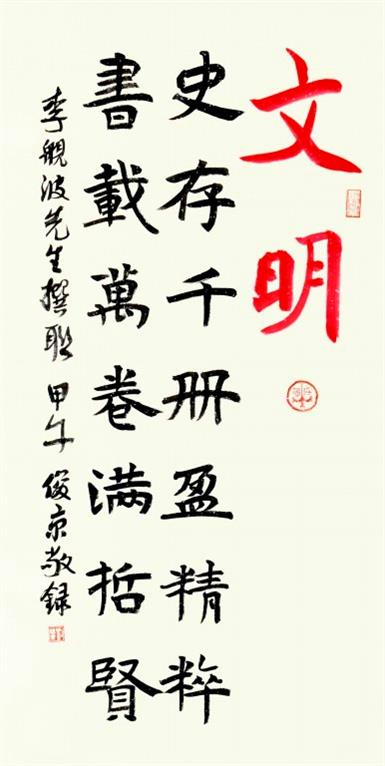 文明
史存千册盈精粹
書載萬卷满哲賢
李舰波先生撰联 甲午 俊京敬録